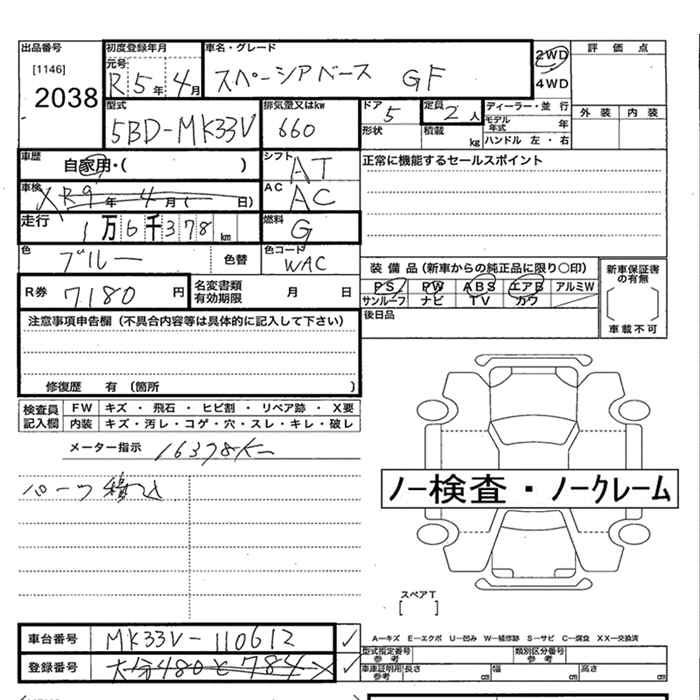 出品番号 初度登録年月 車名・グレード 評価点
[1146] 元号 R5年 4月 スペーシアベース GF 2WD
2038 4WD
型式 排気量又はkw ドア 定員 ディーラー・並行 外装 内装
5BD-MK33V 660 5 2人 モデル年式 年
形状 積載 kg ハンドル 左・右
車歴 自家用・( ) シフト AT 正常に機能するセールスポイント
車検 R9年 4月( 日) AC AC
走行 1万6千378km 燃料 G
色 ブルー 色替 色コード WAC
装備品(新車からの純正品に限り○印) 新車保証書の有無
R券 7180円 名変書類有効期限 月 日 PS PW ABS エアB アルミW
サンルーフ ナビ TV カワ
注意事項申告欄(不具合内容等は具体的に記入して下さい) 後日品 車載不可
修復歴 有(箇所 )
検査員記入欄 FW キズ・飛石・ヒビ割・リペア跡・X要
内装 キズ・汚レ・コゲ・穴・スレ・キレ・破レ
メーター指示 16378K
パーツ積込
ノー検査・ノークレーム
スペアT
[ ]
車台番号 MK33V-110612 A―キズ E―エクボ U―凹み W―補修跡 S―サビ C―腐食 XX―交換済
登録番号 大分480と784 型式指定番号 参考 類別区分番号 参考
車庫証明用 参考 長さ cm 幅 cm 高さ cm